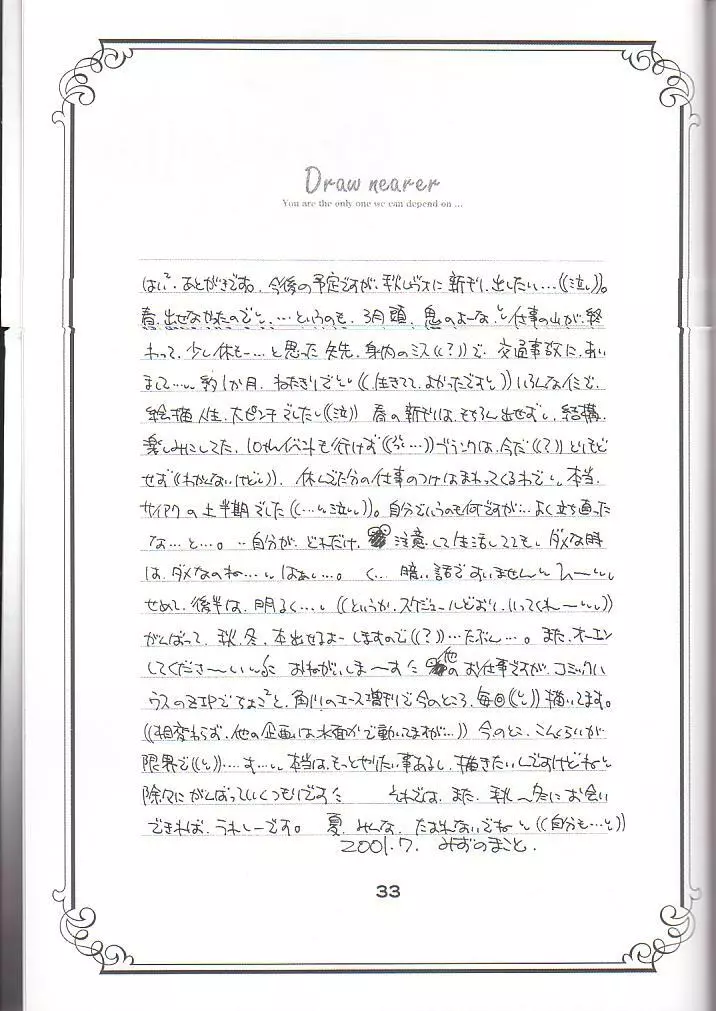 Draw nearer
You are the only one we can depend on ...
はい。あとがきです。今後の予定ですが、秋レヴォに新刊、出したい…((泣))。
春、出せなかったのでと、…というのも、3月頭、鬼のよーな、仕事の山が、終
わって、少し休も…と思った矢先、身内のミス((?))で、交通事故に、あい
まして…、約1か月、ねたきりでと((生きてて、よかったですと))いろんなイミで、
絵描人生、大ピンチでした((泣)) 春の新刊は、もちろん出せずし、結構、
楽しみにしてた、イベントも行けず((…))ブランクは、今だ((?))とりもど
せず((わかんないけど))、休んでた分の仕事のつけはまわってくるわで、本当、
サイアクの上半期でした((…泣))。自分でいうのも何ですが…よく立ち直った
な…と…。…自分が、どれだけ、注意して生活してても、ダメな時
は、ダメなのね…、はぁ…。く…暗い話ですいません
せめて、後半は、明るく…、((というか、スケジュールどおり、いってくれ〜))
がんばって、秋、冬、本出せるよーしますので((?))…たぶん…。また、オーエン
してくださ〜い おねがいしま〜す 他のお仕事ですが、コミックハ
ウスのZIPでちょこっと、角川のエース増刊で今のところ、毎回 描いてます。
((相変わらず、他の企画は水面下で動いてますが…)) 今のとこ、こんくらいが
限界で…す…、本当は、もっとやりたい事あるし、描きたいんですけどねと
除々にがんばっていくつもりです それでは、また、秋〜冬にお会い
できれば、うれしーです。 夏、みんな、たおれないでねと((自分も…と))
2001.7. みずのまこと.
33